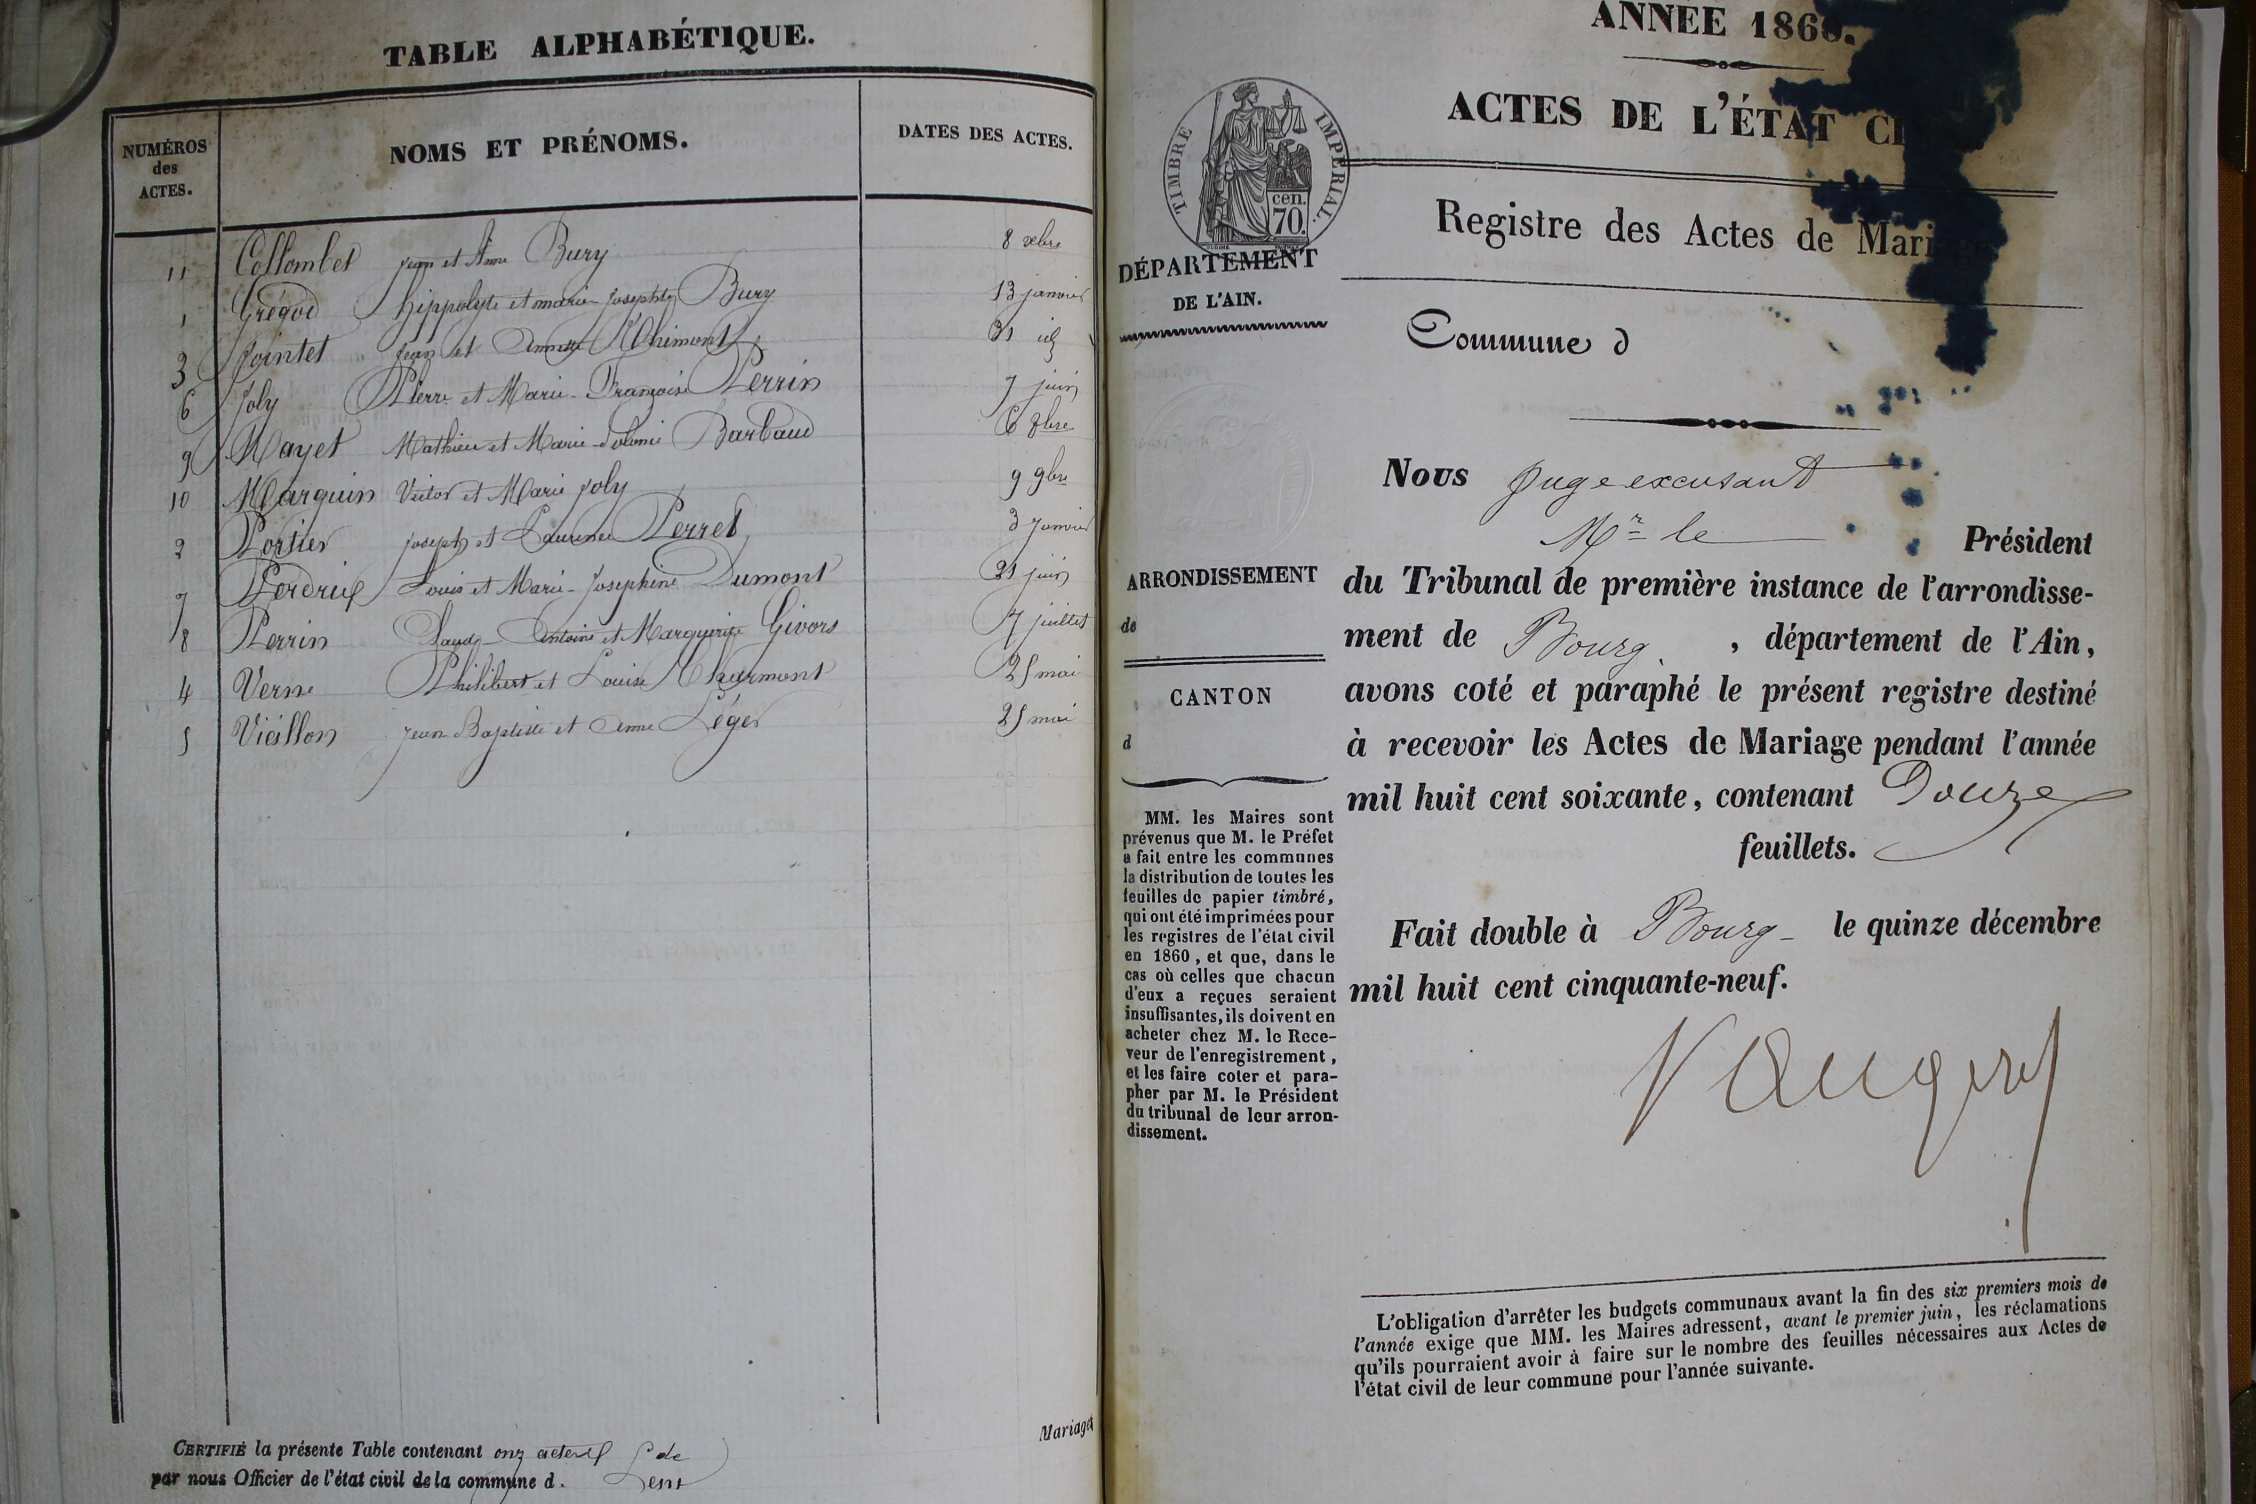 TABLE ALPHABÉTIQUE.
NUMÉROS des ACTES.
NOMS ET PRÉNOMS.
DATES DES ACTES.
11 Collombet Jean et Anne Bury 8 xbre
1 Grégoire hippolyte et marie Josephte Bury 13 janvier
3 Jointet Jean et Annette 31 id
6 Joly Pierre et Marie-Françoise Perrin 7 juin
9 Mayet Mathieu et Marie Barbaud 6 8bre
10 Marguin Victor et Marie Joly 9 9bre
2 Portier Joseph et Laurence Perret 3 Janvier
7 Perdrix Louis et Marie-Josephine Dumont 21 juin
8 Perrin Claude-Antoine et Marguerite Givors 7 juillet
4 Verne Philibert et Louise Charmont 25 mai
5 Vieillon Jean Baptiste et Anne Léger 25 mai
Mariages
CERTIFIÉ la présente Table contenant onze actes de
par nous Officier de l'état civil de la commune d. Lent
ANNÉE 1860.
ACTES DE L'ÉTAT CI
Registre des Actes de Mari
TIMBRE IMPÉRIAL.
cen.
70.
DÉPARTEMENT
DE L'AIN.
Commune d
ARRONDISSEMENT
de
CANTON
d
MM. les Maires sont
prévenus que M. le Préfet
a fait entre les communes
la distribution de toutes les
feuilles de papier timbré,
qui ont été imprimées pour
les registres de l'état civil
en 1860, et que, dans le
cas où celles que chacun
d'eux a reçues seraient
insuffisantes, ils doivent en
acheter chez M. le Rece-
veur de l'enregistrement,
et les faire coter et para-
pher par M. le Président
du tribunal de leur arron-
dissement.
Nous Juge excusant
Mr le Président
du Tribunal de première instance de l'arrondisse-
ment de Bourg, département de l'Ain,
avons coté et paraphé le présent registre destiné
à recevoir les Actes de Mariage pendant l'année
mil huit cent soixante, contenant Douze
feuillets.
Fait double à Bourg le quinze décembre
mil huit cent cinquante-neuf.
L'obligation d'arrêter les budgets communaux avant la fin des six premiers mois de
l'année exige que MM. les Maires adressent, avant le premier juin, les réclamations
qu'ils pourraient avoir à faire sur le nombre des feuilles nécessaires aux Actes de
l'état civil de leur commune pour l'année suivante.